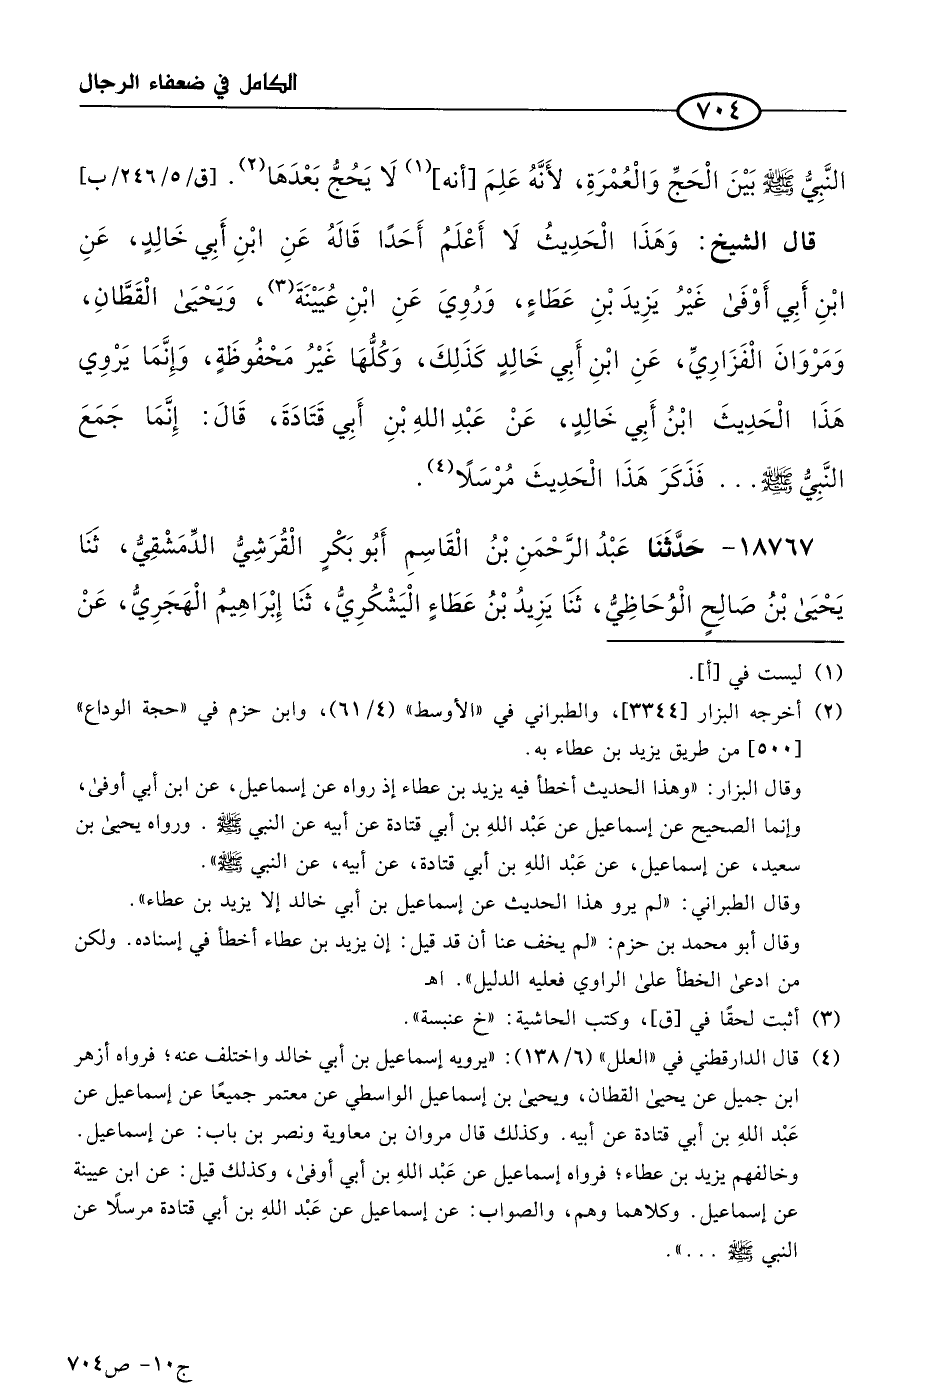 الكامل في ضعفاء الرجال
٧٠٤
النَّبِيُّ ﷺ بَيْنَ الْحَجِّ وَالْعُمْرَةِ، لأَنَّهُ عَلِمَ [أنه](١) لَا يَحُجُّ بَعْدَهَا(٢). [ق/٢٤٦/٥/ب]
قال الشيخ: وَهَذَا الْحَدِيثُ لَا أَعْلَمُ أَحَدًا قَالَهُ عَنِ ابْنِ أَبِي خَالِدٍ، عَنِ
ابْنِ أَبِي أَوْفَىٰ غَيْرُ يَزِيدَ بْنِ عَطَاءٍ، وَرُوِيَ عَنِ ابْنِ عُيَيْنَةَ(٣)، وَيَحْيَىٰ الْقَطَّانِ،
وَمَرْوَانَ الْفَزَارِيِّ، عَنِ ابْنِ أَبِي خَالِدٍ كَذَلِكَ، وَكُلُّهَا غَيْرُ مَحْفُوظَةٍ، وَإِنَّمَا يَرْوِي
هَذَا الْحَدِيثَ ابْنُ أَبِي خَالِدٍ، عَنْ عَبْدِ اللهِ بْنِ أَبِي قَتَادَةَ، قَالَ: إِنَّمَا جَمَعَ
النَّبِيُّ ﷺ... فَذَكَرَ هَذَا الْحَدِيثَ مُرْسَلًا(٤).
١٨٧٦٧- حَدَّثَنَا عَبْدُ الرَّحْمَنِ بْنُ الْقَاسِمِ أَبُو بَكْرٍ الْقُرَشِيُّ الدِّمَشْقِيُّ، ثَنَا
يَحْيَىٰ بْنُ صَالِحٍ الْوُحَاظِيُّ، ثَنَا يَزِيدُ بْنُ عَطَاءٍ الْيَشْكُرِيُّ، ثَنَا إِبْرَاهِيمُ الْهَجَرِيُّ، عَنْ
(١) ليست في [أ].
(٢) أخرجه البزار [٣٣٤٤]، والطبراني في «الأوسط» (٦١/٤)، وابن حزم في «حجة الوداع»
[٥٠٠] من طريق يزيد بن عطاء به.
وقال البزار: «وهذا الحديث أخطأ فيه يزيد بن عطاء إذ رواه عن إسماعيل، عن ابن أبي أوفىٰ،
وإنما الصحيح عن إسماعيل عن عَبْد اللهِ بن أبي قتادة عن أبيه عن النبي ﷺ. ورواه يحيىٰ بن
سعيد، عن إسماعيل، عن عَبْد اللهِ بن أبي قتادة، عن أبيه، عن النبي ﷺ».
وقال الطبراني: «لم يرو هذا الحديث عن إسماعيل بن أبي خالد إلا يزيد بن عطاء».
وقال أبو محمد بن حزم: «لم يخف عنا أن قد قيل: إن يزيد بن عطاء أخطأ في إسناده. ولكن
من ادعىٰ الخطأ علىٰ الراوي فعليه الدليل». اهـ
(٣) أثبت لحقًا في [ق]، وكتب الحاشية: «خ عنبسة».
(٤) قال الدارقطني في «العلل» (١٣٨/٦): «يرويه إسماعيل بن أبي خالد واختلف عنه؛ فرواه أزهر
ابن جميل عن يحيىٰ القطان، ويحيىٰ بن إسماعيل الواسطي عن معتمر جميعًا عن إسماعيل عن
عَبْد اللهِ بن أبي قتادة عن أبيه. وكذلك قال مروان بن معاوية ونصر بن باب: عن إسماعيل.
وخالفهم يزيد بن عطاء؛ فرواه إسماعيل عن عَبْد اللهِ بن أبي أوفىٰ، وكذلك قيل: عن ابن عيينة
عن إسماعيل. وكلاهما وهم، والصواب: عن إسماعيل عن عَبْد اللهِ بن أبي قتادة مرسلًا عن
النبي ﷺ...».
ج١٠- ص٧٠٤